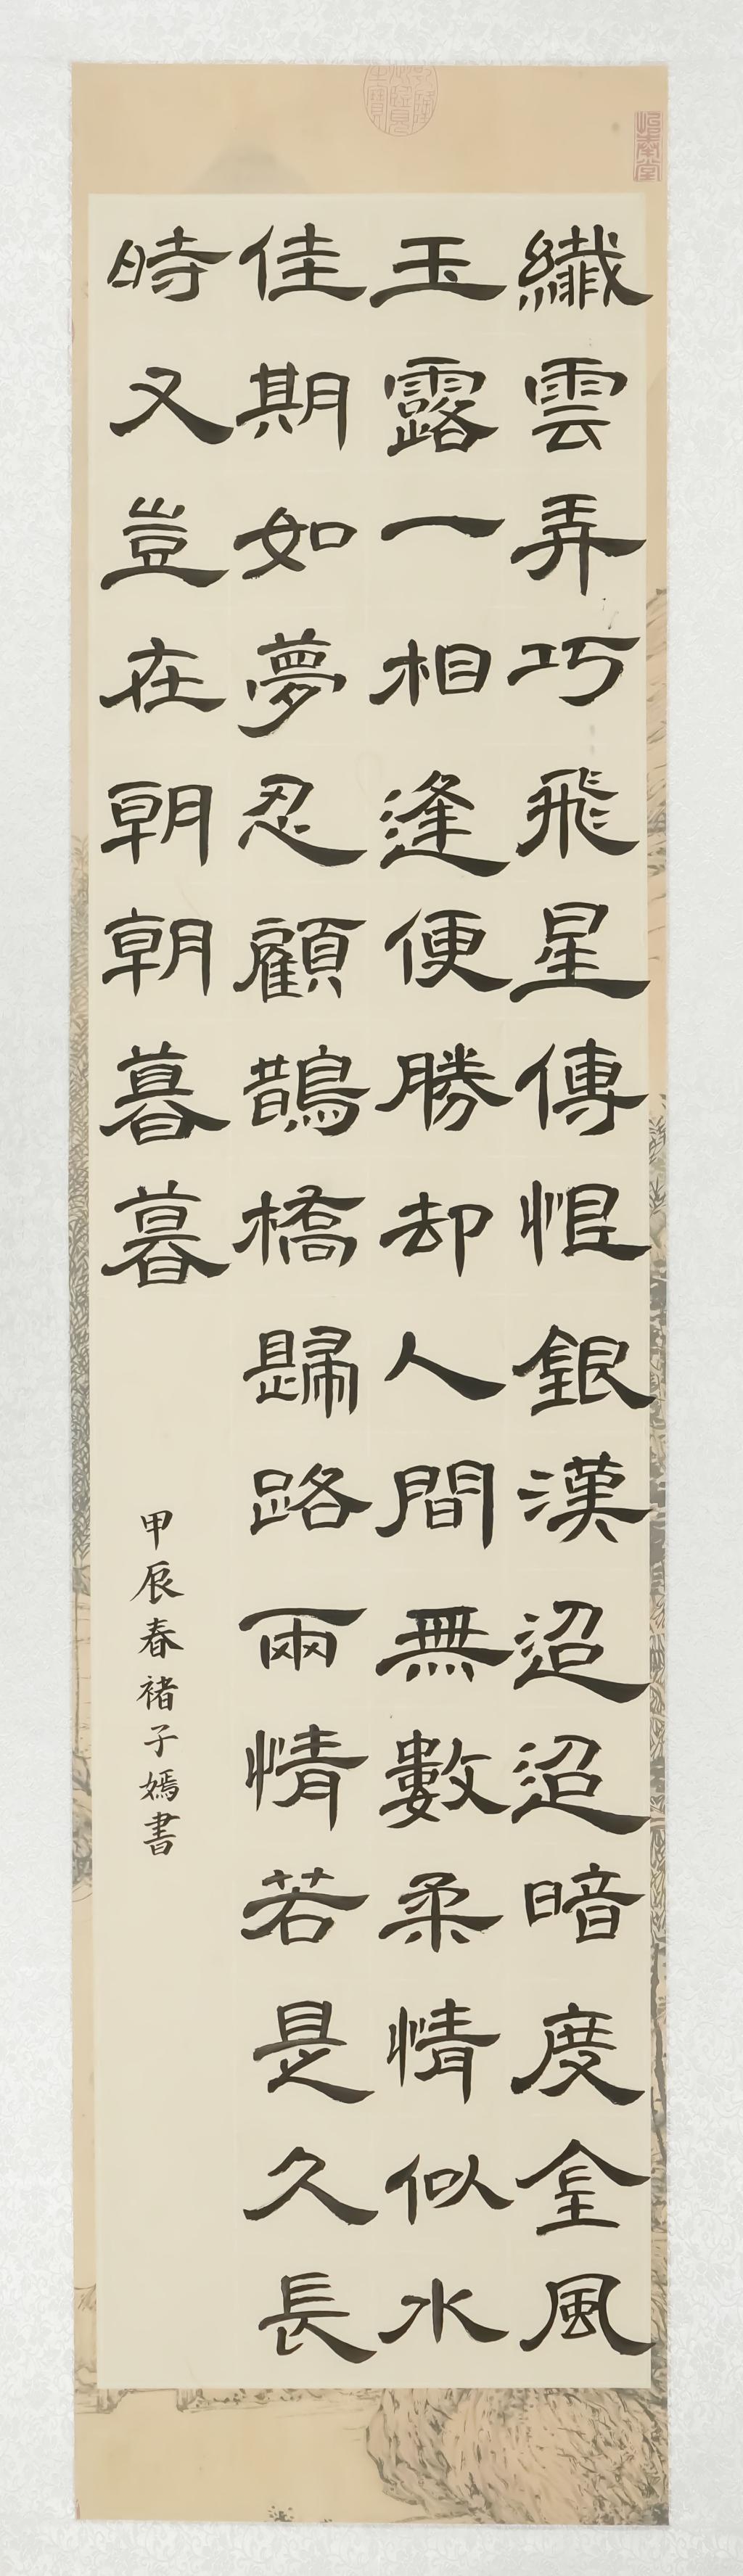 纖雲弄巧飛星傳恨銀漢迢迢暗度金風
玉露一相逢便勝却人間無數柔情似水
佳期如夢忍顧鵲橋歸路兩情若是久長
時又豈在朝朝暮暮
甲辰春褚子嫣書